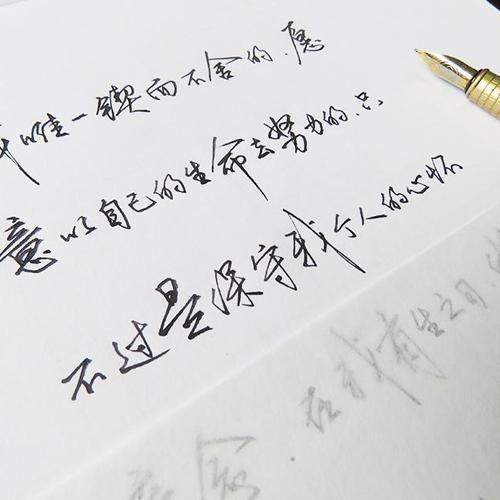 我唯一锲而不舍的.愿
意以自己的生命去努力的.只
不过是保守我个人的心怀
在我有生之日